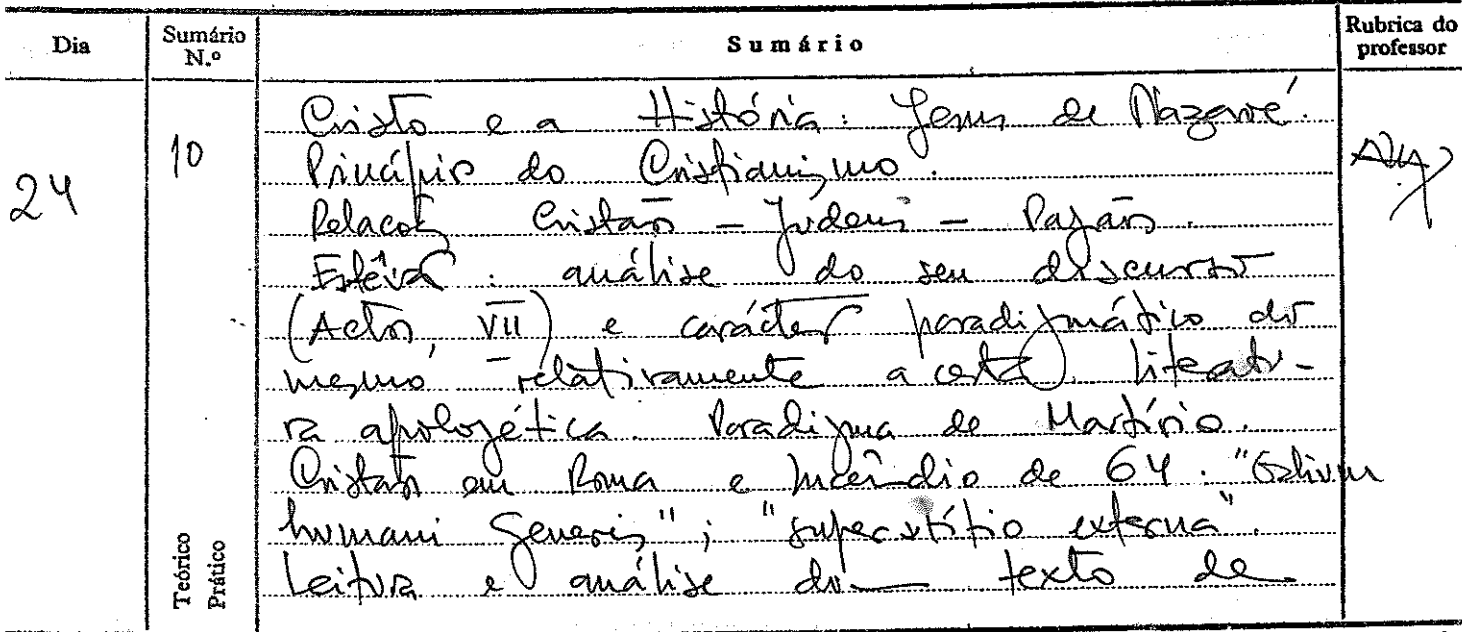 Dia
Sumário N.º
Sumário
Rubrica do professor
24
10
Cristo e a História: Jesus de Nazaré.
Princípio do Cristianismo.
Relações Cristãos - Judeus - Pagãos.
Estêvão: análise do seu discurso
(Actos, VII) e carácter paradigmático do
mesmo relativamente a certa literatu-
ra apologética. Paradigma de Martírio.
Cristãos em Roma e Incêndio de 64. "Odium
humani generis"; "superstitio externa".
Leitura e análise do texto de
Teórico
Prático